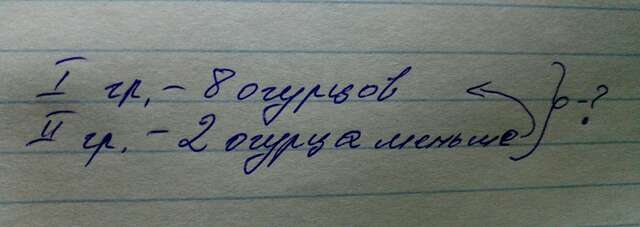 I гр. - 8 огурцов
II гр. - 2 огурца меньше } о-?